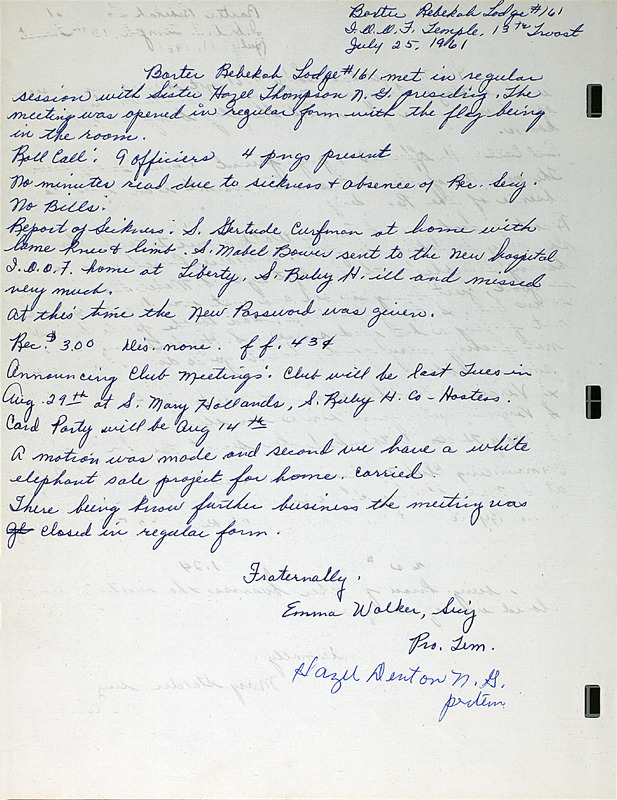 Baxter Rebekah Lodge #161
I.O.O.F. Temple, 13th & Troost
July 25, 1961
Baxter Rebekah Lodge #161 met in regular
session with Sister Hazel Thompson N.G. presiding. The
meeting was opened in regular form with the flag being
in the room.
Roll Call: 9 officers 4 pngs present
No minutes read due to sickness & absence of Rec. Secy.
No Bills.
Report of Sickness: S. Gertude Curfman at home with
lame knee & limb. S. Mabel Bower sent to the new hospital
I.O.O.F. home at Liberty. S. Ruby H. ill and missed
very much.
At this time the New Password was given.
Rec. $3.00 Dis. none. f f. 43¢
Announcing Club Meetings: Club will be last Tues in
Aug. 29th at S. Mary Hollands, S. Ruby H. Co-Hostess.
Card Party will be Aug 14th
A motion was made and second we have a white
elephant sale project for home. Carried.
There being know further business the meeting was
closed in regular form.
Fraternally,
Emma Walker, Secy
Pro. Tem.
Hazel Denton N.G.
protem